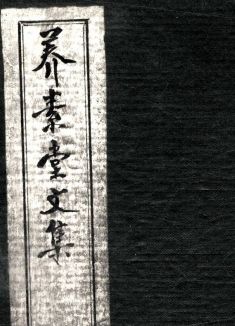 养素堂文集